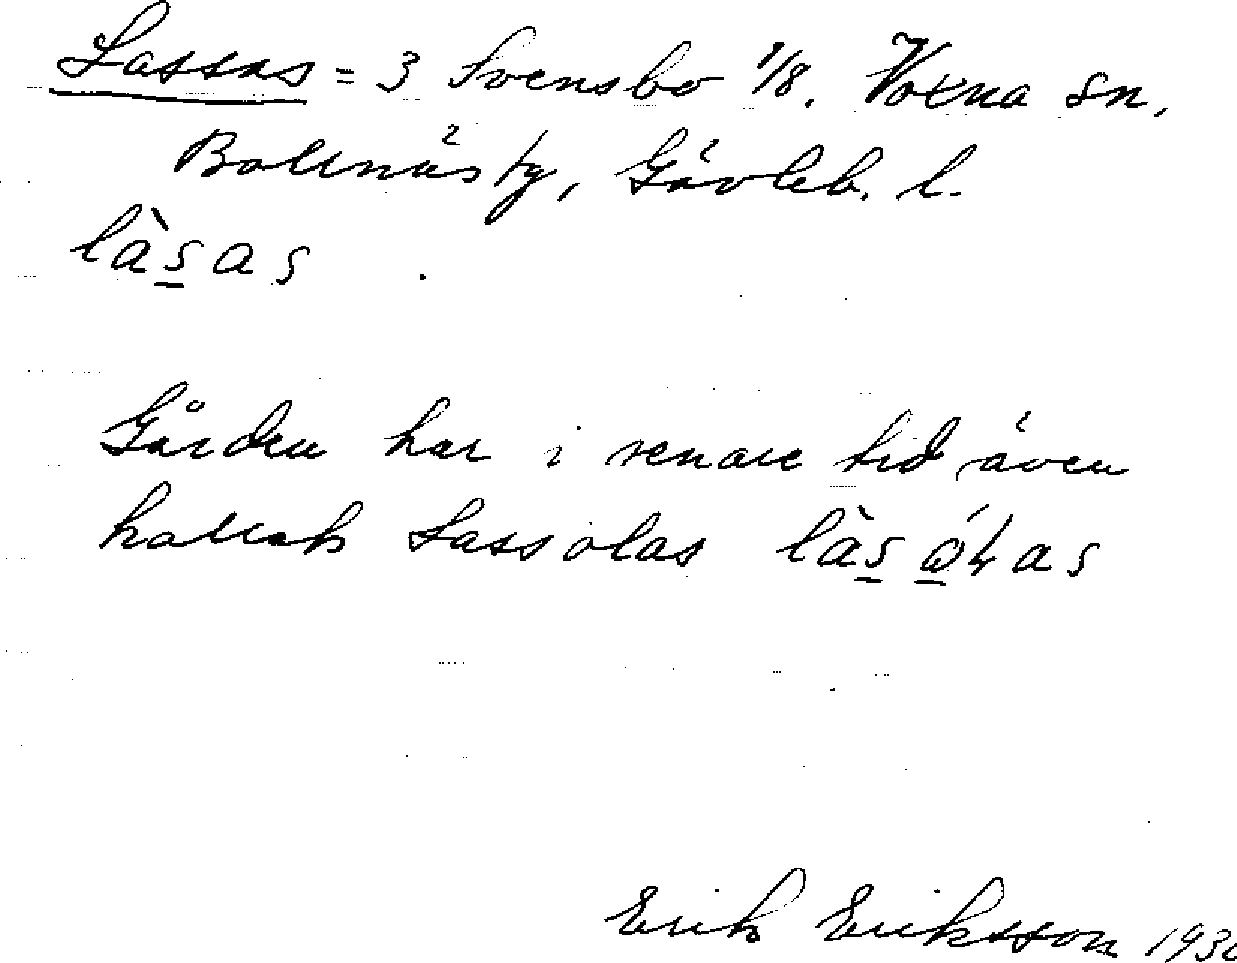 Lassas = 3 Svensbo 1/8. Voxna sn,
Bollnäs tg, Gävleb. l.
làsas
Gården har i renare tid även
kallats Lassolas
Erik Eriksson